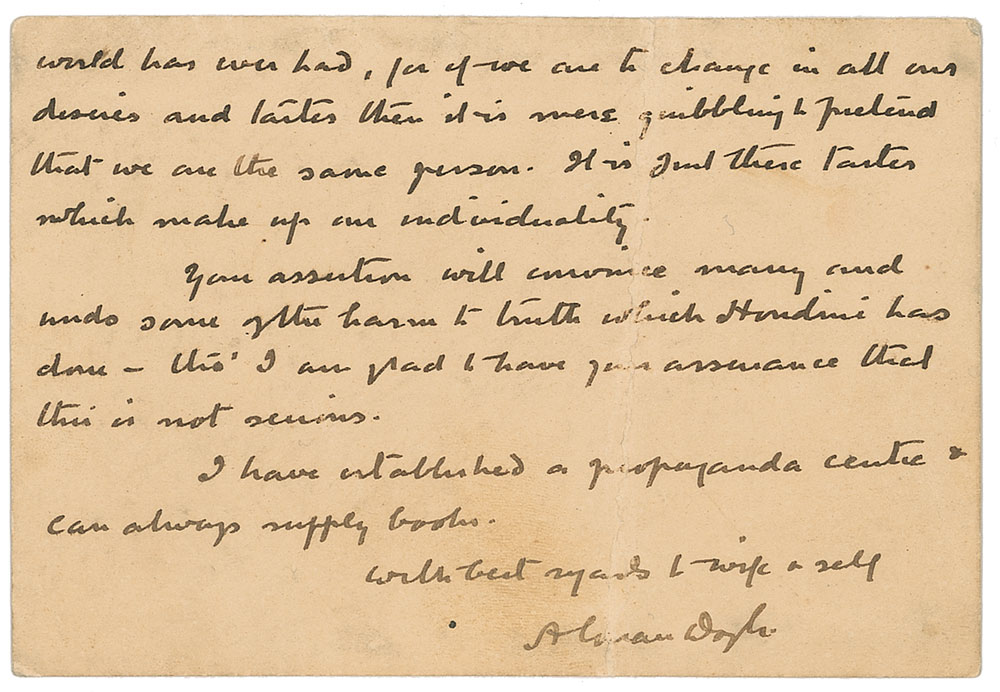 world has ever had, for if we are to change in all our
desires and tastes then it is mere quibbling to pretend
that we are the same person. It is just these tastes
which make up our individuality.
Your assertion will convince many and
undo some of the harm to truth which Houdini has
done – tho' I am glad to have your assurance that
this is not serious.
I have established a propaganda centre &
can always supply books.
With best regards to wife & self
A Conan Doyle